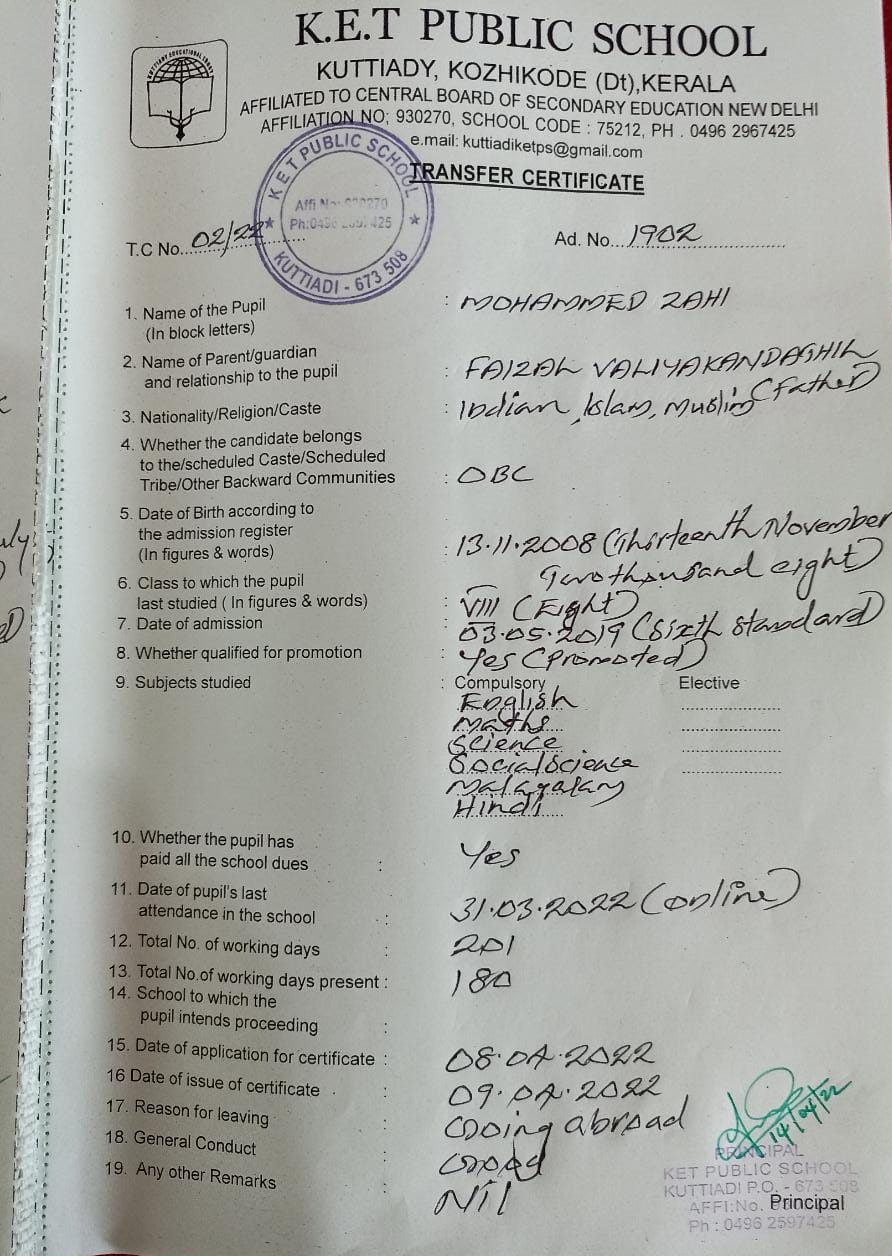 K.E.T PUBLIC SCHOOL
KUTTIADY, KOZHIKODE (Dt),KERALA
AFFILIATED TO CENTRAL BOARD OF SECONDARY EDUCATION NEW DELHI
AFFILIATION NO; 930270, SCHOOL CODE : 75212, PH . 0496 2967425
e.mail: kuttiadiketps@gmail.com
KUTTIADY EDUCATIONAL TRUST
TRANSFER CERTIFICATE
KET PUBLIC SCHOOL
Affi No: 930270
Ph:0496 2597425
KUTTIADI - 673 508
T.C No. 02/22
Ad. No. 1902
1. Name of the Pupil : MOHAMMED ZAHI
(In block letters)
2. Name of Parent/guardian
and relationship to the pupil : FAIZAL VALIYAKANDATHIL
(Father)
3. Nationality/Religion/Caste : Indian, Islam, Muslim
4. Whether the candidate belongs
to the/scheduled Caste/Scheduled
Tribe/Other Backward Communities : OBC
5. Date of Birth according to
the admission register
(In figures & words) : 13.11.2008 (Thirteenth November
Twothousand eight)
6. Class to which the pupil
last studied ( In figures & words) : VIII (Eight)
7. Date of admission : 03.05.2019 (Sixth standard)
8. Whether qualified for promotion : Yes (Promoted)
9. Subjects studied : Compulsory Elective
English
Maths
Science
Social Science
Malayalam
Hindi
10. Whether the pupil has
paid all the school dues : Yes
11. Date of pupil's last
attendance in the school : 31.03.2022 (online)
12. Total No. of working days : 201
13. Total No.of working days present : 180
14. School to which the
pupil intends proceeding :
15. Date of application for certificate : 08.04.2022
16 Date of issue of certificate : 09.04.2022
17. Reason for leaving : Going abroad
18. General Conduct : Good
19. Any other Remarks : Nil
14/04/22
PRINCIPAL
KET PUBLIC SCHOOL
KUTTIADI P.O. - 673 508
AFFI:No.
Principal
Ph : 0496 2597425